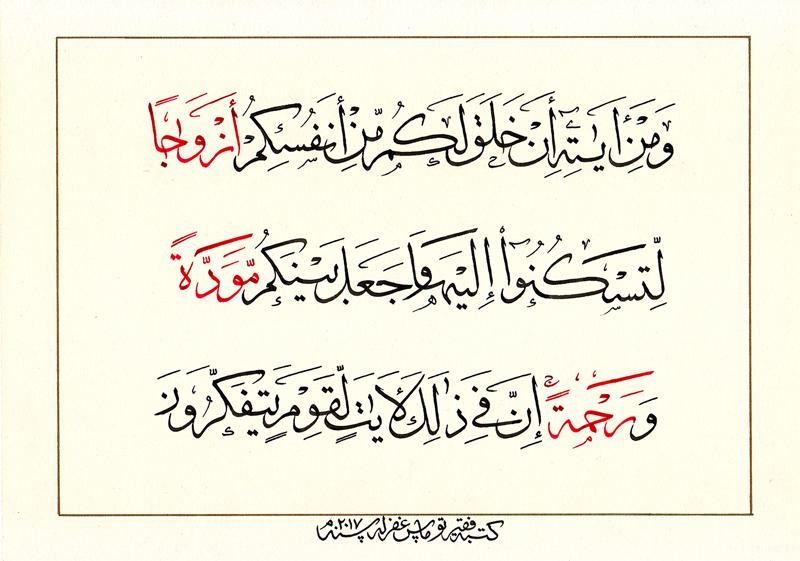 وَمِنْ ءَايَٰتِهِۦٓ أَنْ خَلَقَ لَكُم مِّنْ أَنفُسِكُمْ أَزْوَٰجًا
لِّتَسْكُنُوٓا۟ إِلَيْهَا وَجَعَلَ بَيْنَكُم مَّوَدَّةً
وَرَحْمَةً ۚ إِنَّ فِى ذَٰلِكَ لَءَايَٰتٍ لِّقَوْمٍ يَتَفَكَّرُونَ
كتبه فقير توماس غفر له سنه ٢٠١٧م